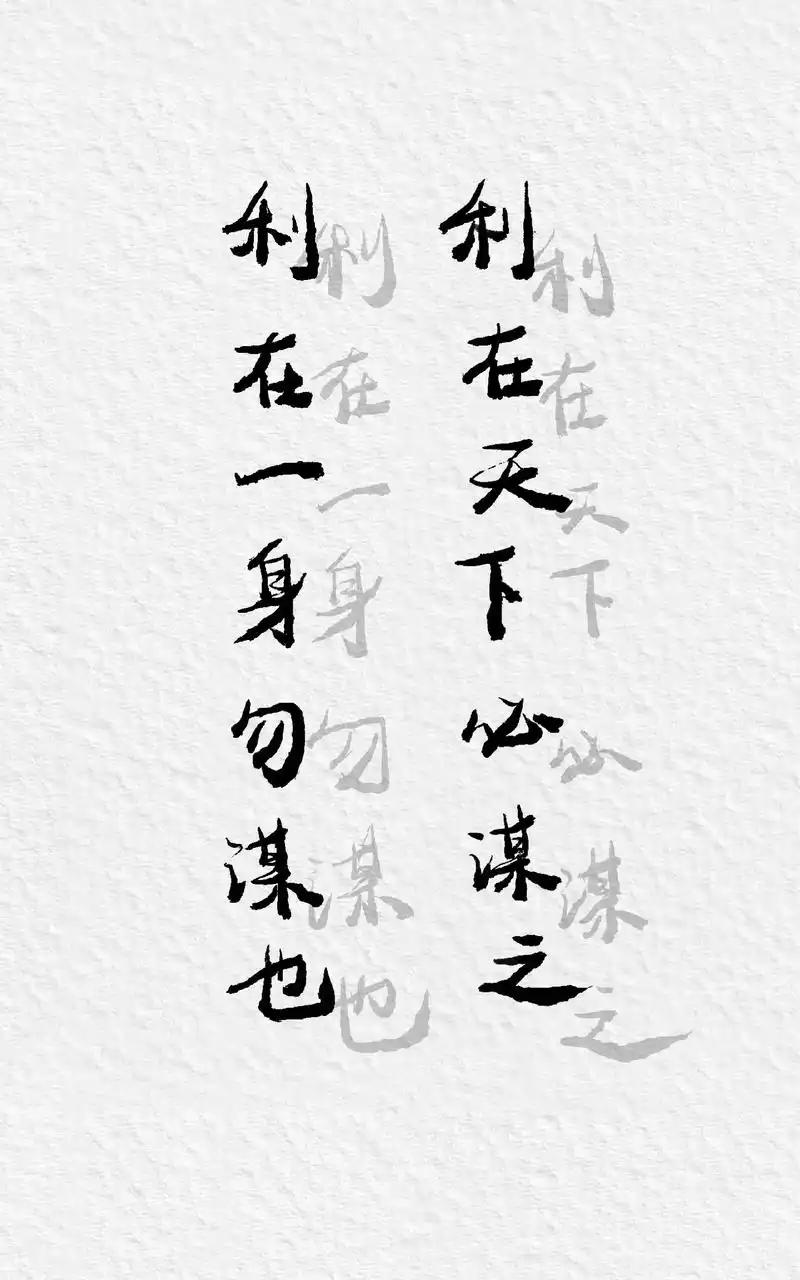 利在天下必谋之
利在一身勿谋也